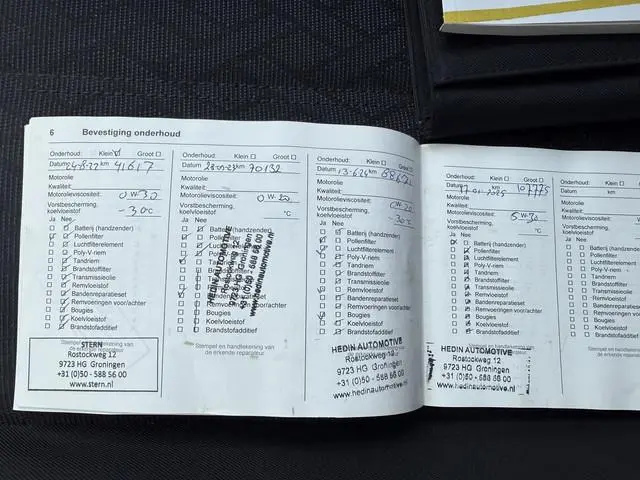 6 Bevestiging onderhoud
Onderhoud: Klein Groot
Datum 24-8-22 km 41617
Motorolie
Kwaliteit:
Motorolieviscositeit: 0W-30
Vorstbescherming, koelvloeistof -30c
Ja Nee
Batterij (handzender)
Pollenfilter
Luchtfilterelement
Poly-V-riem
Tandriem
Brandstoffilter
Transmissieolie
Remvloeistof
Bandenreparatieset
Remvoeringen voor/achter
Bougies
Koelvloeistof
Brandstofadditief
Stempel en handtekening van
de erkende reparateur
STERN
Rostockweg 12
9723 HG Groningen
+31 (0)50 - 588 56 00
www.stern.nl
Onderhoud: Klein Groot
Datum km 70132
Motorolie
Kwaliteit:
Motorolieviscositeit: 0W-20
Vorstbescherming,
koelvloeistof °C
Ja Nee
Batterij (handzender)
Pollenfilter
Poly-V-riem
Tandriem
Brandstoffilter
Transmissieolie
Remvloeistof
Bandenreparatieset
Remvoeringen voor/achter
Bougies
Koelvloeistof
Brandstofadditief
HEDIN AUTOMOTIVE
Rostockweg 12
9723 HG Groningen
+31 (0)50 - 588 56 00
www.hedinautomotive.nl
Stempel en handtekening van
de erkende reparateur
Onderhoud: Klein Groot
Datum 13-6-24 km
Motorolie
Kwaliteit:
Motorolieviscositeit: 0W-20
Vorstbescherming,
koelvloeistof -30°C
Ja Nee
Batterij (handzender)
Pollenfilter
Luchtfilterelement
Poly-V-riem
Tandriem
Brandstoffilter
Transmissieolie
Remvloeistof
Bandenreparatieset
Remvoeringen voor/achter
Bougies
Koelvloeistof
Brandstofadditief
HEDIN AUTOMOTIVE
Rostockweg 12
9723 HG Groningen
+31 (0)50 - 588 56 00
www.hedinautomotive.nl
Onderhoud: Klein Groot
Datum 17-01-2025 km 107775
Motorolie
Kwaliteit:
Motorolieviscositeit:
Vorstbescherming,
koelvloeistof °C
Ja Nee
Batterij (handzender)
Pollenfilter
Luchtfilterelement
Poly-V-riem
Tandriem
Brandstoffilter
Transmissieolie
Remvloeistof
Bandenreparatieset
Remvoeringen voor/achter
Bougies
Koelvloeistof
Brandstofadditief
Stempel en handtekening van
de erkende reparateur
HEDIN AUTOMOTIVE
Rostockweg 12
9723 HG Groningen
+31 (0)50 - 588 56 00
www.hedinautomotive.nl
Onderhoud: Klein
Datum km
Motorolie
Kwaliteit:
Motorolieviscositeit:
Vorstbescherming,
koelvloeistof
Ja Nee
Batterij (han
Pollenfilter
Luchtfilterele
Poly-V-riem
Tandriem
Brandstoffil
Transmissie
Remvloeisto
Bandenrepa
Remvoering
Bougies
Koelvloeisto
Brandstofad